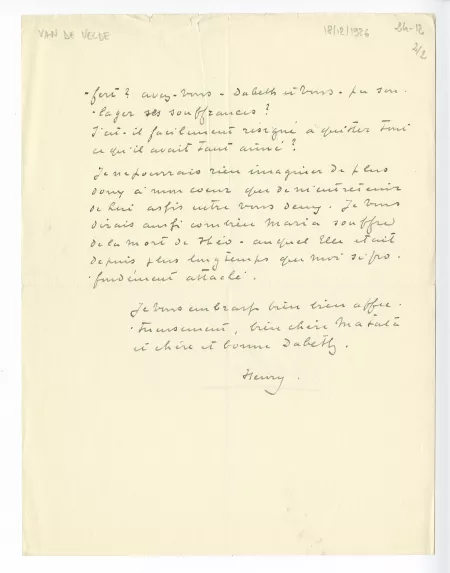 VAN DE VELDE
18/12/1926
24-12
2/2
-fert? avez-vous - Dabeth et vous - pu sou-
-lager ses souffrances?
S'est-il facilement résigné à quitter tout
ce qu'il avait tant aimé?
Je ne pourrais rien imaginer de plus
doux à mon coeur que de m'entretenir
de lui assis entre vous deux. Je vous
dirais aussi combien Maria souffre
de la mort de Théo - auquel Elle était
depuis plus longtemps que moi si pro-
-fondément attaché.
Je vous embrasse bien bien affec-
-tueusement, bien chère
et chère et bonne Dabeth.
Henry.